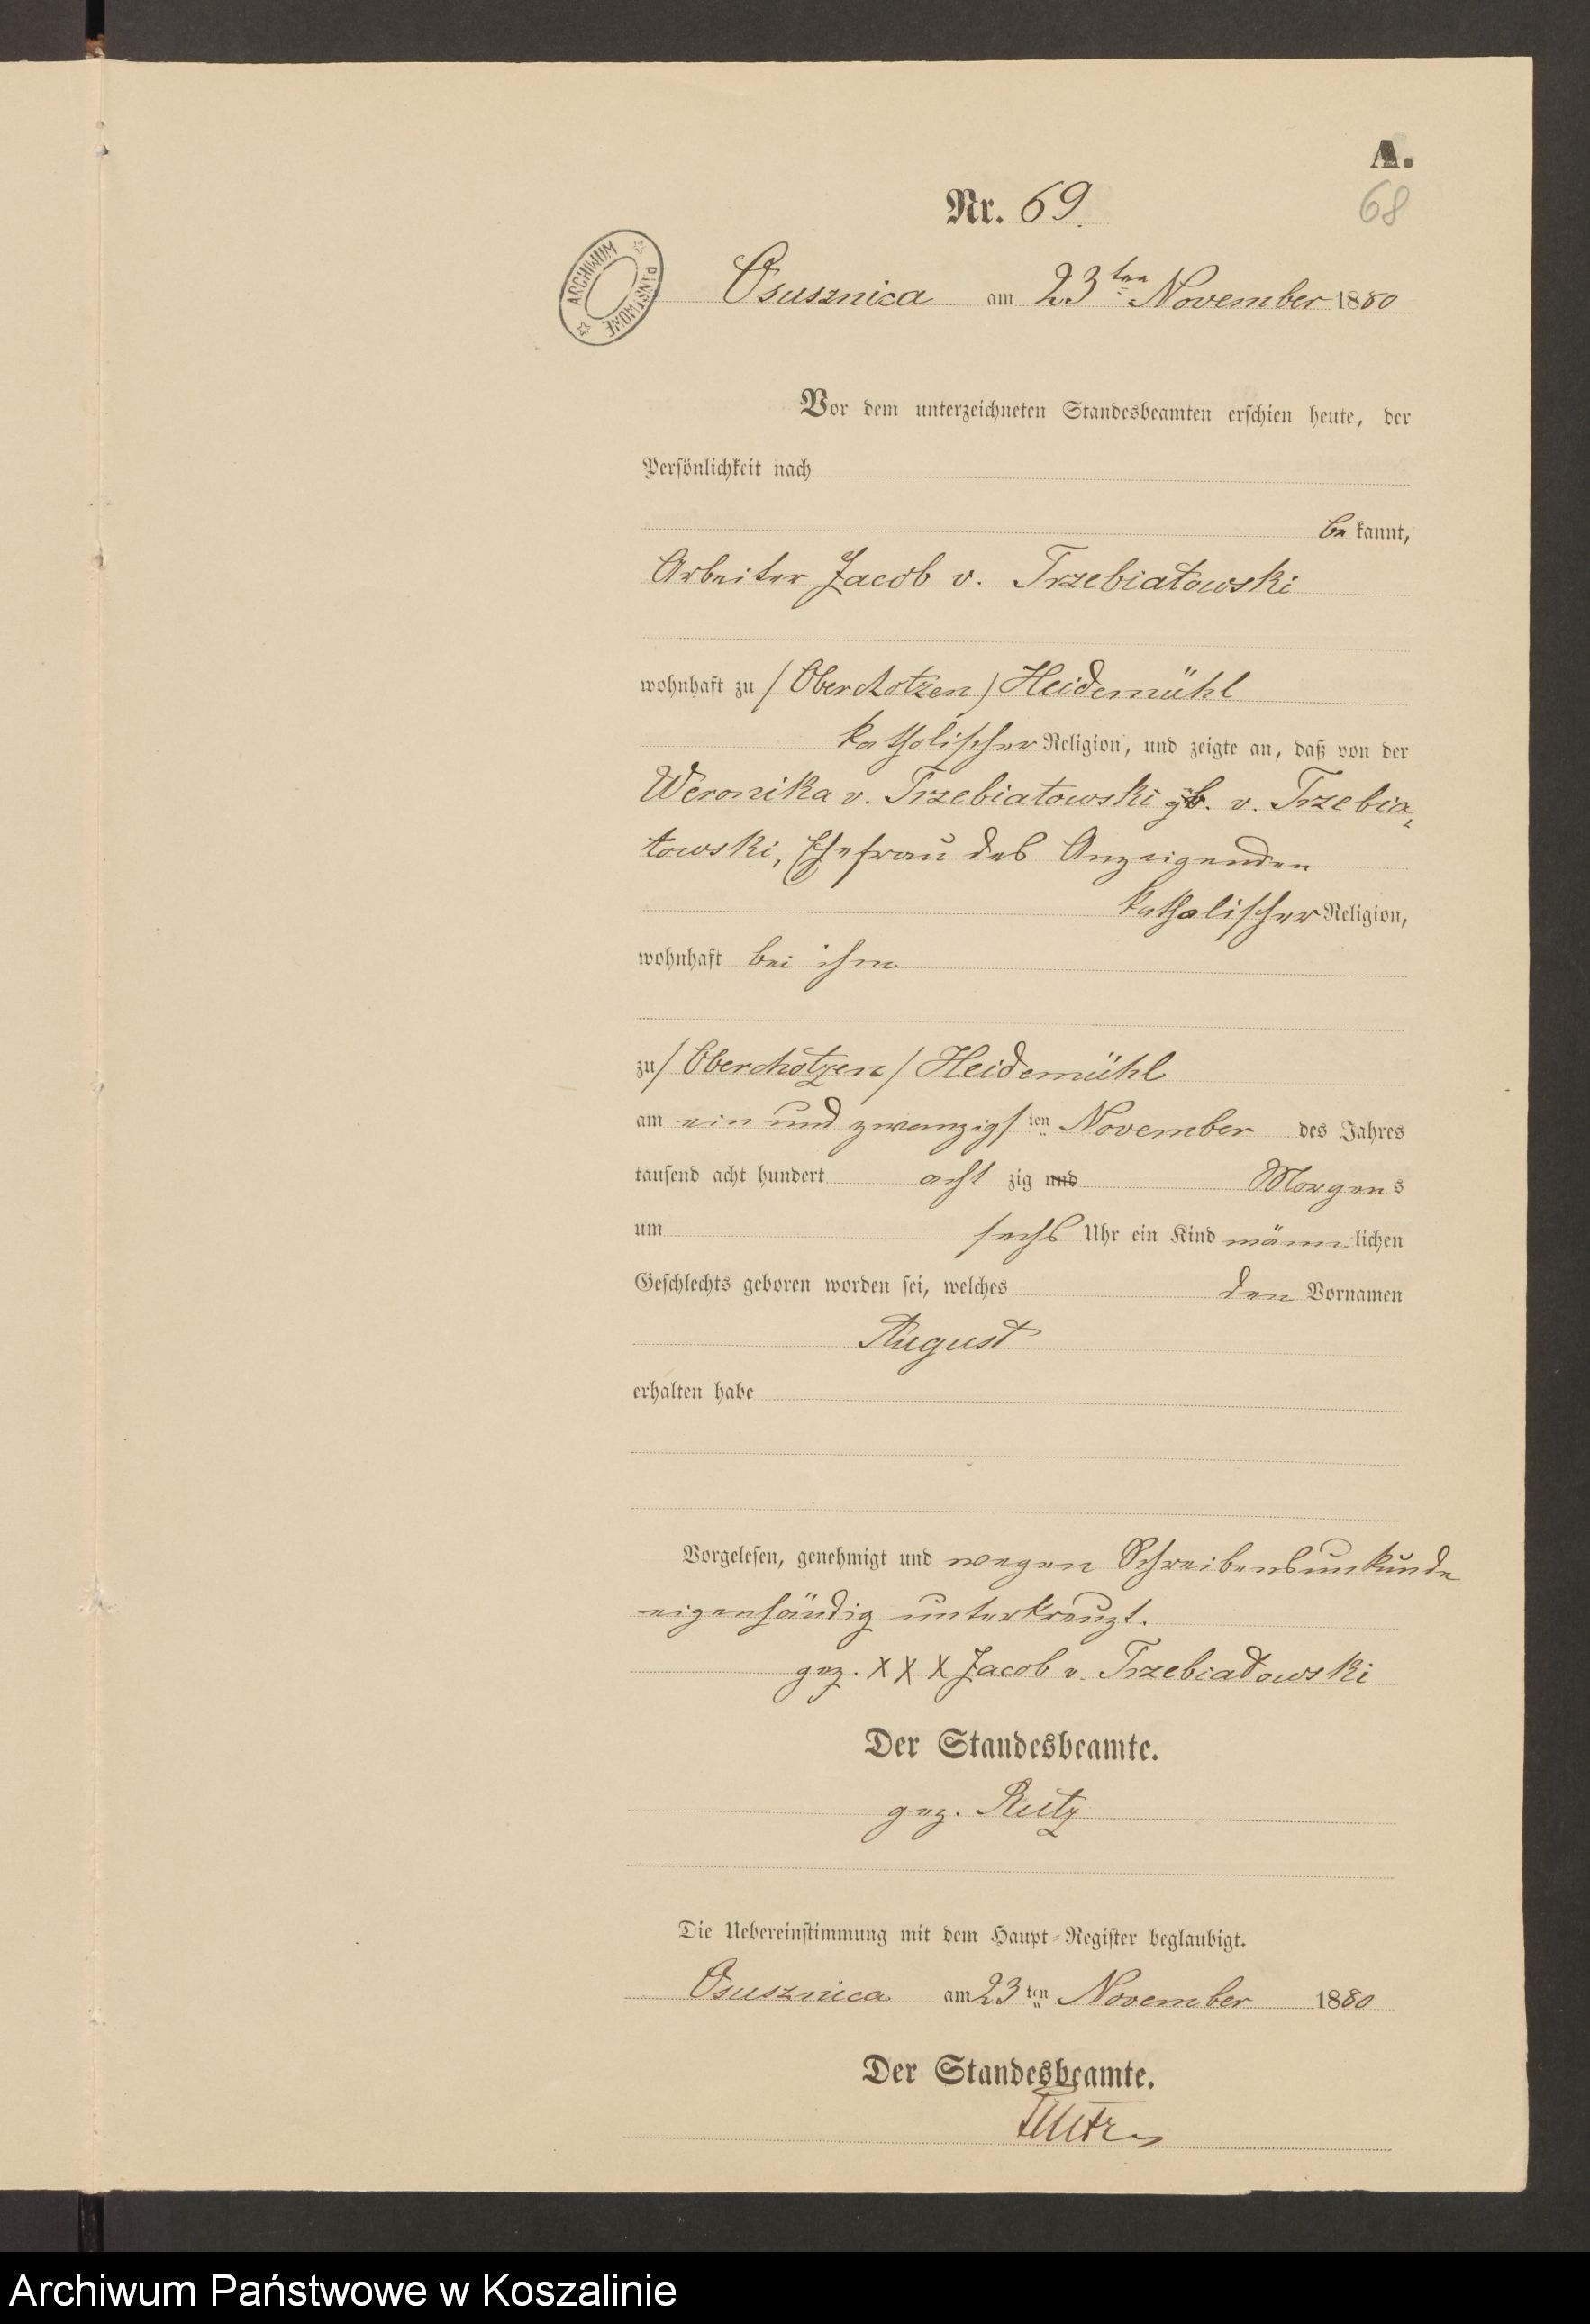 A.
68
Nr. 69.
ARCHIWUM PAŃSTWOWE
Osusznica am 23ten November 1880
Vor dem unterzeichneten Standesbeamten erschien heute, der
Persönlichkeit nach
be kannt,
Arbeiter Jacob v. Trzebiatowski
wohnhaft zu /Oberchotzen/ Heidemühl
katholischer Religion, und zeigte an, daß von der
Weronika v. Trzebiatowski gb. v. Trzebia-
towski, Ehefrau des Anzeigenden
katholischer Religion,
wohnhaft bei ihm
zu /Oberchotzen/ Heidemühl
am ein und zwanzigsten November des Jahres
tausend acht hundert acht zig und Morgens
um sechs Uhr ein Kind männlichen
Geschlechts geboren worden sei, welches den Vornamen
August
erhalten habe
Vorgelesen, genehmigt und wegen Schreibensunkunde
eigenhändig unterkreuzt.
gez. XXX Jacob v. Trzebiatowski
Der Standesbeamte.
gez. Rutz
Die Uebereinstimmung mit dem Haupt-Register beglaubigt.
Osusznica am 23ten November 1880
Der Standesbeamte.
Rutz
Archiwum Państwowe w Koszalinie